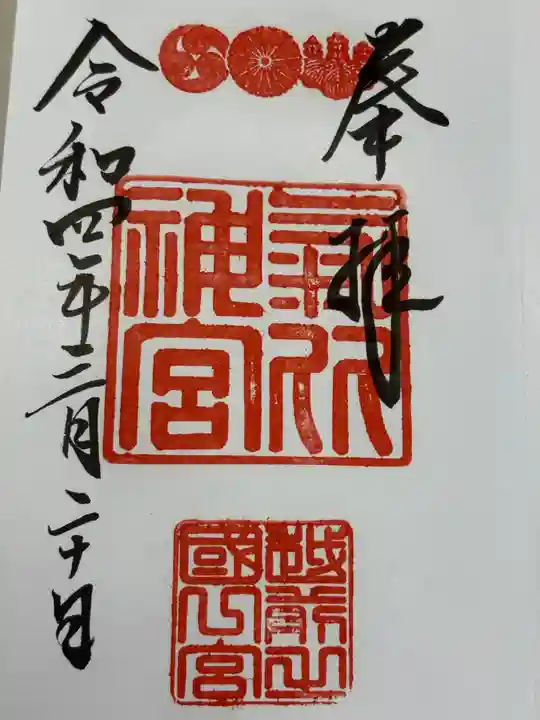 奉拝
氣比
神宮
令和四年三月二十日
越前之
國一宮